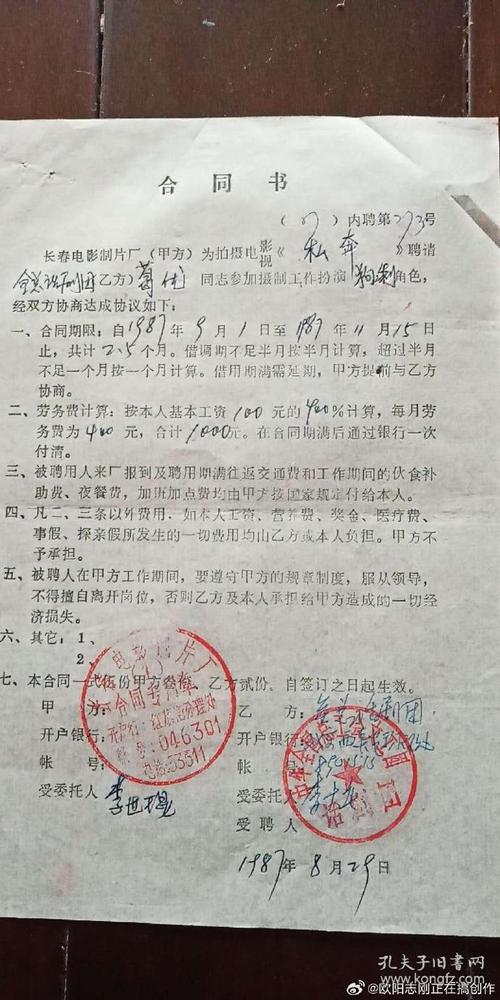 合同书
(87)内聘第273号
长春电影制片厂(甲方)为拍摄电影视《私奔》聘请
全总话剧团乙方)葛优 同志参加摄制工作扮演 角色,
经双方协商达成协议如下:
一、合同期限:自1987年9月1日至1987年11月15日
止,共计2.5个月。借调期不足半月按半月计算,超过半月
不足一个月按一个月计算。借用期满需延期,甲方提前与乙方
协商。
二、劳务费计算:按本人基本工资100元的400%计算,每月劳
务费为400元,合计1000元。在合同期满后通过银行一次
付清。
三、被聘用人来厂报到及聘用期满往返交通费和工作期间的伙食补
助费、夜餐费,加班加点费均由甲方按国家规定付给本人。
四、凡二、三条以外费用,如本人工资、营养费、奖金、医疗费、
事假、探亲假所发生的一切费用均由乙方或本人负担。甲方不
予承担。
五、被聘人在甲方工作期间,要遵守甲方的规章制度,服从领导,
不得擅自离开岗位,否则乙方及本人承担给甲方造成的一切经
济损失。
六、其它:1、
2、
七、本合同一式伍份甲方叁份,乙方贰份。自签订之日起生效。
甲方: 乙方:全总话剧团
开户银行: 开户银行:
帐号: 帐号:
受委托人 受委托人
受聘人
1987年8月29日
电影制片厂
合同专用章
开户行:红旗街分理处
帐号:046301
电话:53311
话剧团
孔夫子旧书网
@欧阳志刚正在搞创作